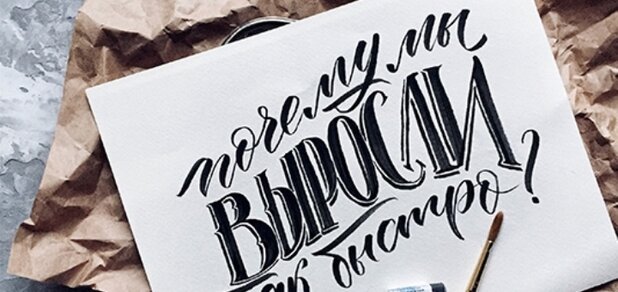 почему мы
ВЫРОСЛИ
так быстро?